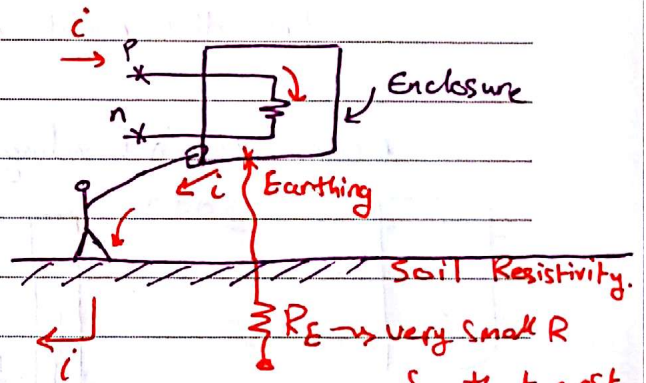 i
P
Enclosure
n
i Earthing
Soil Resistivity.
RE → very small R
i